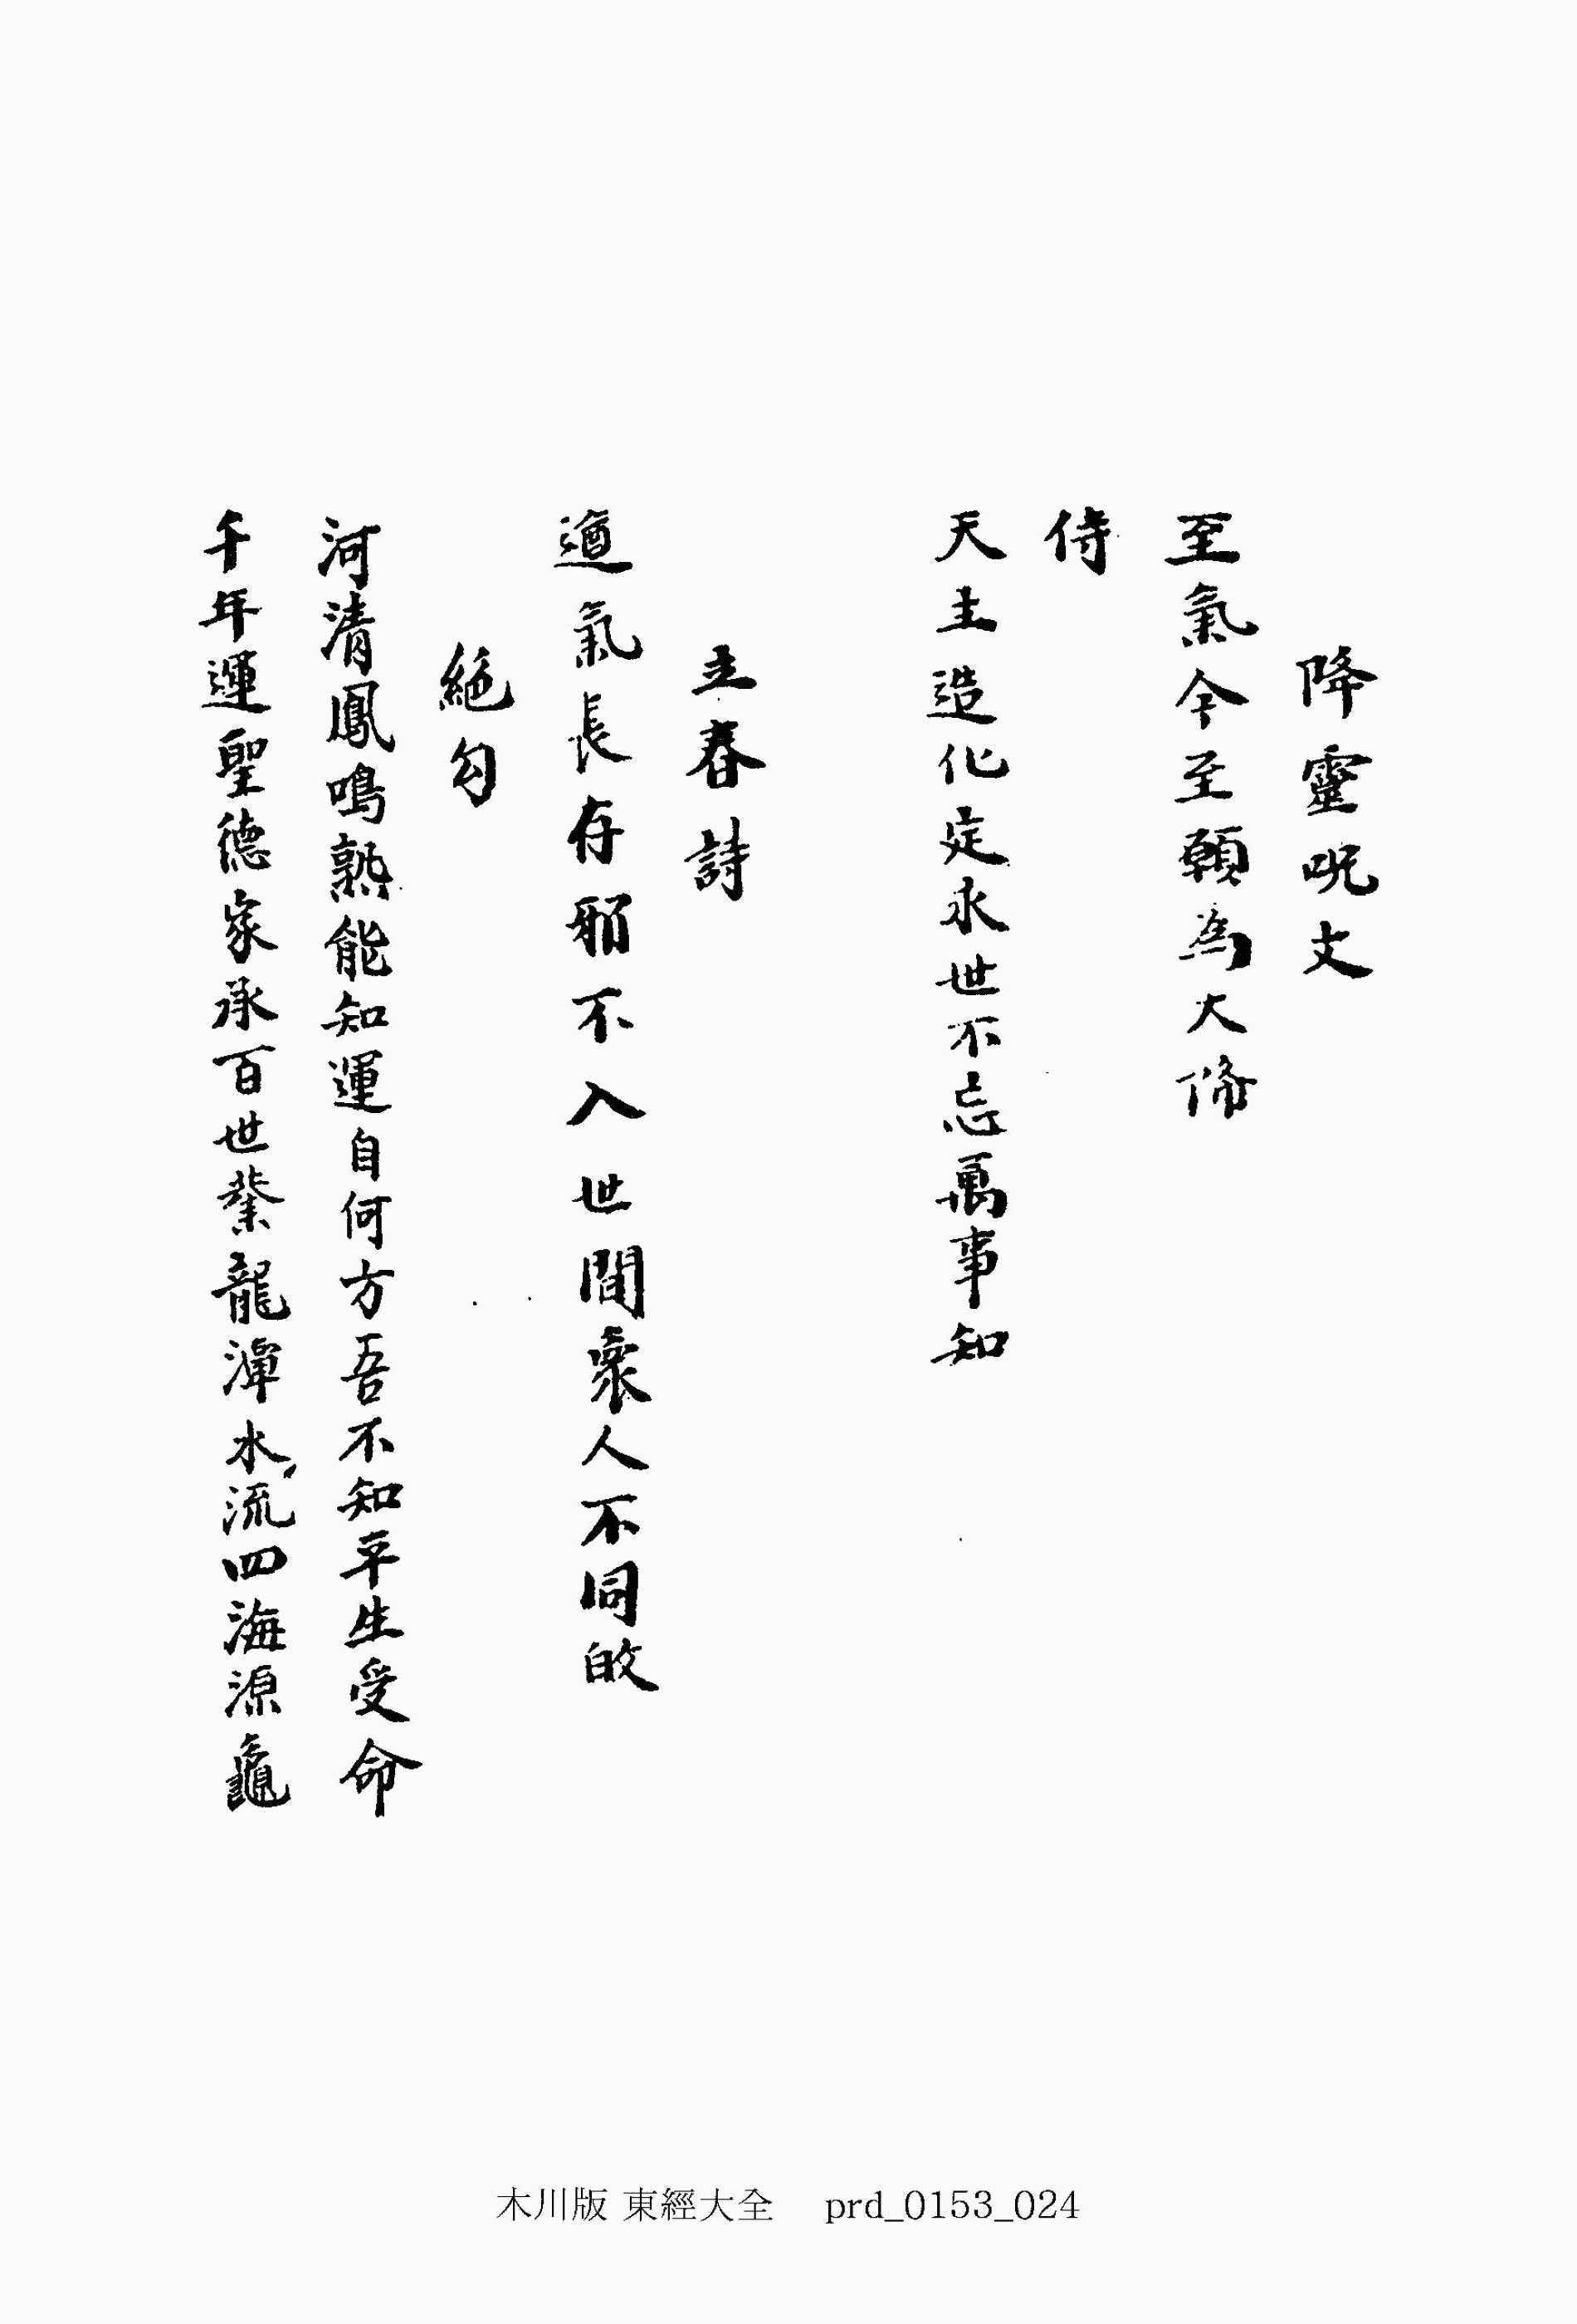 降靈呪文
至氣今至願爲大降
侍
天主造化定永世不忘萬事知
立春詩
道氣長存邪不入世間衆人不同歸
絶句
河淸鳳鳴孰能知運自何方吾不知平生受命
千年運聖德家承百世業龍潭水流四海源龜
木川版 東經大全 prd_0153_024